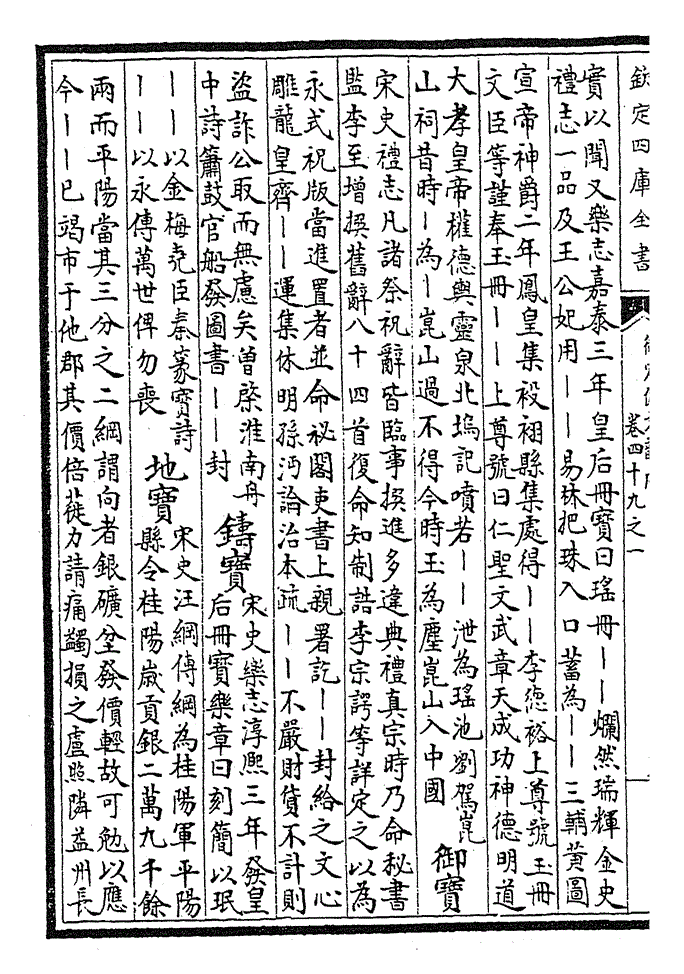 欽定四庫全書
卷四十九之一
一
實以聞又樂志嘉泰三年皇后冊寶曰瑤冊——爛然瑞輝金史
禮志一品及王公妃用——易林把珠入口蓄為——三輔黃圖
宣帝神爵二年鳳皇集祋祤縣集處得——李徳裕上尊號玉冊
文臣等謹奉玉冊——上尊號曰仁聖文武章天成功神德明道
大孝皇帝權德輿靈泉北塢記噴若——泄為瑤池劉駕崑
山祠昔時—為—崑山過不得今時玉為塵崑山入中國
御寶
宋史禮志凡諸祭祝辭皆臨事撰進多違典禮真宗時乃命秘書
監李至增撰舊辭八十四首復命知制誥李宗諤等詳定之以為
永式祝版當進置者並命秘閣吏書上親署訖——封給之文心
雕龍皇齊——運集休明孫沔論治本疏——不嚴財貨不計則
盜詐公取而無慮矣曾棨淮南舟
中詩簫鼓官船發圖書——封
鑄寶
宋史樂志淳熙三年發皇
后冊寶樂章曰刻簡以珉
——以金梅堯臣秦篆寶詩
——以永傳萬世俾勿喪
地寶
宋史汪綱傳綱為桂陽軍平陽
縣令桂陽歲貢銀二萬九千餘
兩而平陽當其三分之二綱謂向者銀礦坌發價輕故可勉以應
今——已竭市于他郡其價倍蓰力請痛蠲損之盧照隣益州長